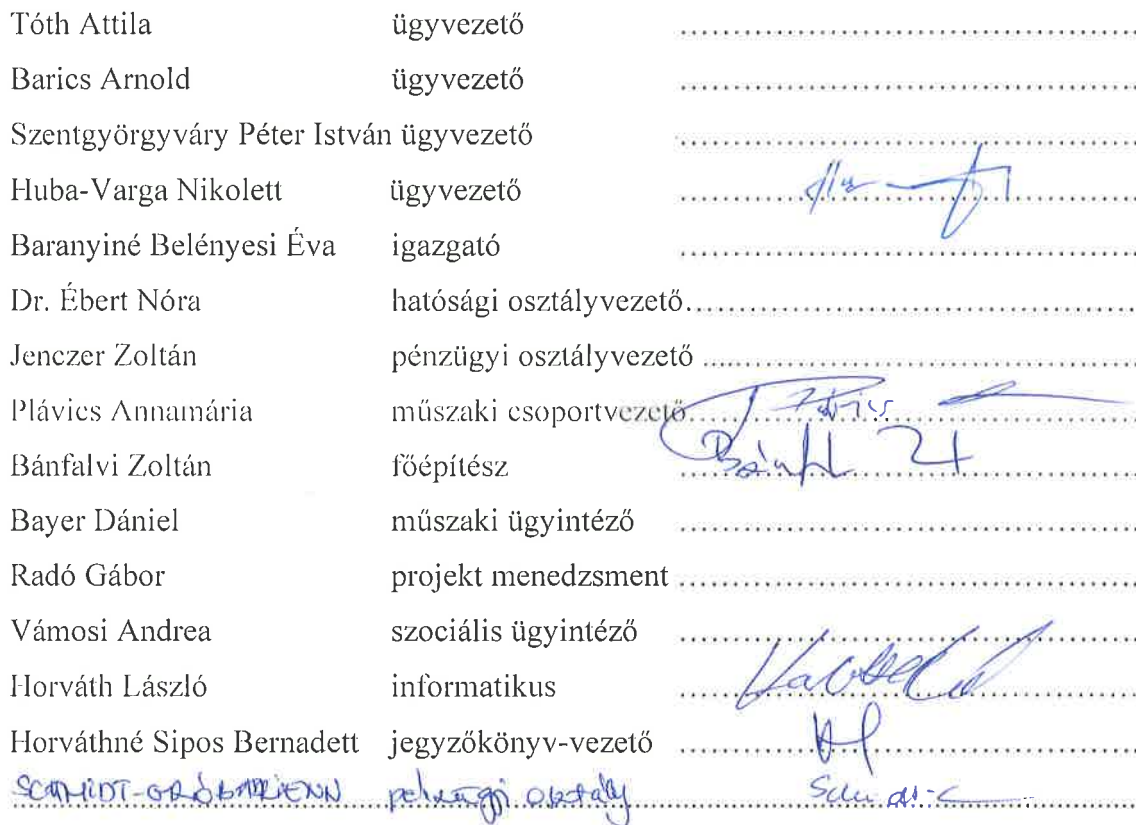 Tóth Attila ügyvezető
Barics Arnold ügyvezető
Szentgyörgyváry Péter István ügyvezető
Huba-Varga Nikolett ügyvezető
Baranyiné Belényesi Éva igazgató
Dr. Ébert Nóra hatósági osztályvezető
Jenczer Zoltán pénzügyi osztályvezető
Plávics Annamária műszaki csoportvezető
Bánfalvi Zoltán főépítész
Bayer Dániel műszaki ügyintéző
Radó Gábor projekt menedzsment
Vámosi Andrea szociális ügyintéző
Horváth László informatikus
Horváthné Sipos Bernadett jegyzőkönyv-vezető
osztály